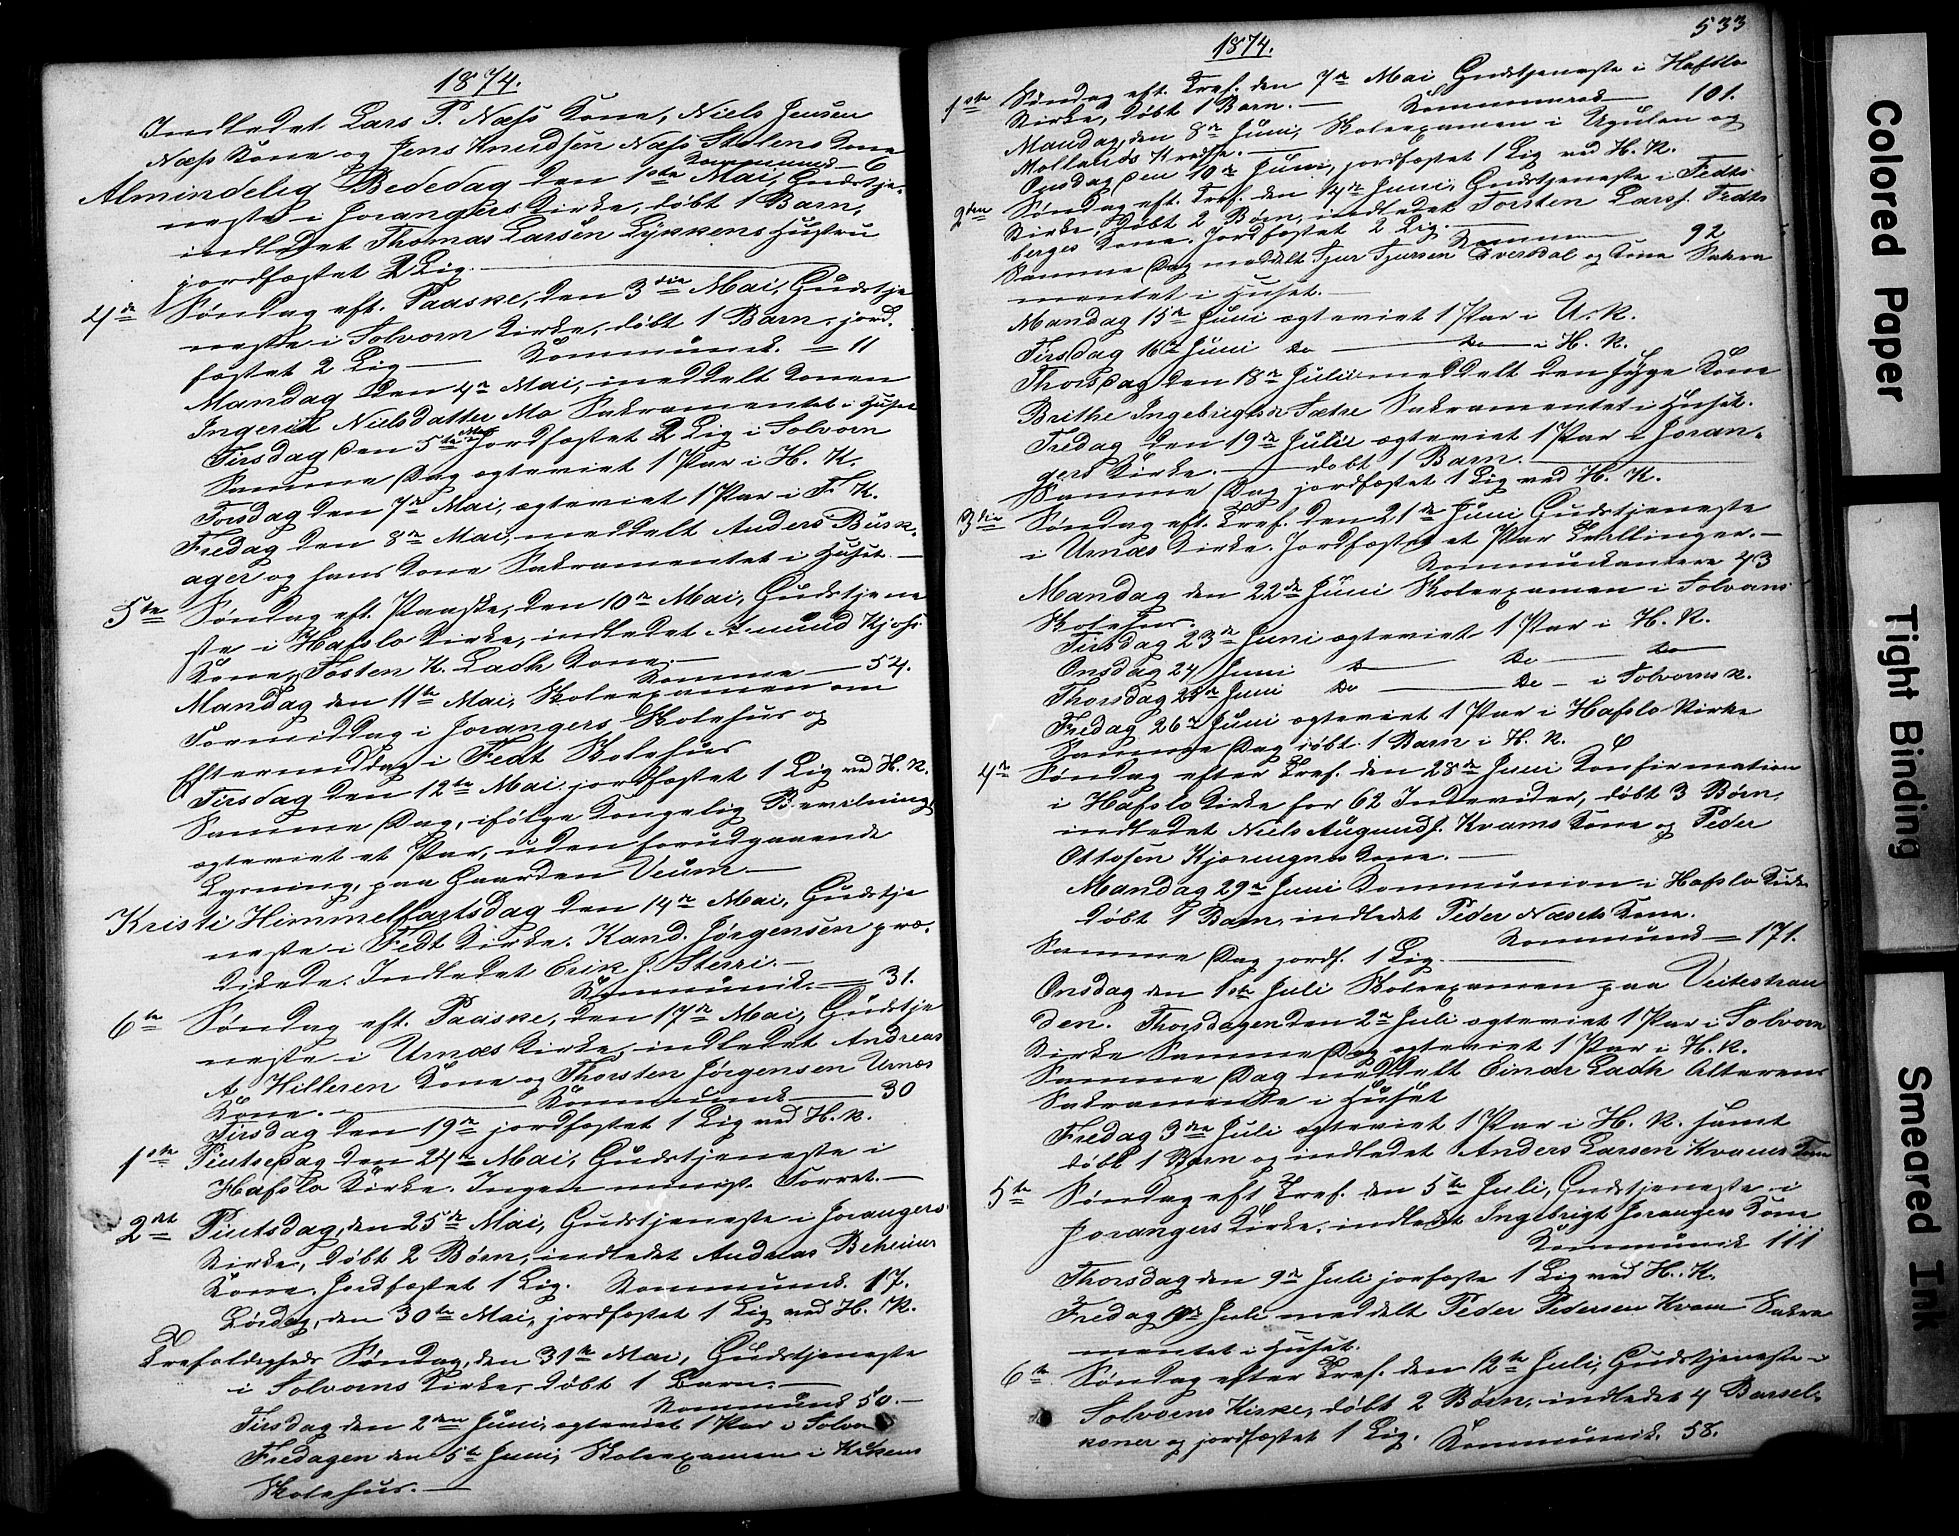 1874.
Indledet Lars P. Næss Kone, Niels Jensen
Næss Kone og Jens Knudsen Næss Stølens Kone
Kommunic. — 6
Almindelig Bededag den 1ste Mai, Gudstje-
neste i Jorangers Kirke, døbt 1 Barn,
indledet Thomas Larsen Lykkens Hustru
jordfæstet 2 Lig.
4de Søndag eft. Paaske, den 3die Mai, Gudstje
neste i Solvorn Kirke, døbt 1 Barn, jord-
fæstet 2 Lig — Kommunik. — 11
Mandag den 4de Mai, meddelt Konen
Ingerid Nielsdatter Mo Sakramentet i Huset
Tirsdag den 5te Mai Jordfæstet 2 Lig i Solvorn
Samme Dag ægteviet 1 Par i H. K.
Torsdag den 7de Mai, ægteviet 1 Par i F. K.
Fredag den 8de Mai, meddelt Anders Busk-
ager og hans Kone Sakramentet i Huset. —
5te Søndag eft. Paaske, den 10de Mai, Gudstjene
ste i Hafslo Kirke, indledet Amund Kjos
Kone, Tosten K. Ladh Kone. —
Komme — 54.
Mandag den 11te Mai, Skoleexamen om
Formiddag i Jorangers Skolehus og
Eftermiddag i Fedt Skolehus
Tirsdag den 12te Mai jordfæstet 1 Lig ved H. K.
Samme Dag, ifølge Kongelig Bevilning,
ægteviet et Par, uden forudgaaende
Lysning, paa Gaarden Veum. —
Kristi Himmelfartsdag den 14de Mai, Gudstje
neste i Fedt Kirke. Kand. Jørgensen præ-
dikede. Indledet Erik J. Sterri. —
Kommunik. — 31.
6te Søndag eft. Paaske, den 17de Mai, Gudstje
neste i Urnæs Kirke, indledet Andreas
A. Hilleren Kone og Thorsten Jørgensen Urnæs
Kone. — Kommunik — 30
Tirsdag den 19de jordfæstet 1 Lig ved H. K.
1ste Pintsedag den 24de Mai, Gudstjeneste i
Hafslo Kirke. Ingen minist. Forret. —
2det Pintsdag, den 25de Mai, Gudstjeneste i Jorangers
Kirke, døbt 2 Børn, indledet Andreas Beheims
Kone. Jordfæstet 1 Lig. Kommunik. 17.
Lørdag, den 30te Mai, jordfæstet 1 Lig ved H. K.
Trefoldigheds Søndag, den 31te Mai, Gudstjeneste
i Solvorns Kirke, døbt 1 Barn. —
Kommunik 50. —
Tirsdag den 2den Juni, ægteviet 1 Par i Solvo
Fredagen den 5te Juni, Skoleexamen i Kirkens
Skolehus. —
533
1874.
1ste Søndag eft. Tref. den 7de Mai Gudstjeneste i Hafslo
Kirke, døbt 1 Barn. — Kommunik — 101.
Mandag, den 8de Juni, Skoleexamen i Ugulen og
Mollands Kredse. —
Onsdag den 10de Juni, jordfæstet 1 Lig ved H. K.
2den Søndag eft. Tref. den 14de Juni, Gudstjeneste i Fedts
Kirke, døbt 2 Børn, indledet Torsten Lars. Fedts
berges Kone. Jordfæstet 2 Lig. —
Kommun — 92
Samme Dag meddelt Tjur Tjursen Kverkdal og Kone Sakra
mentet i Huset. —
Mandag 15de Juni ægteviet 1 Par i U. K.
Tirsdag 16de Juni do — do — i H. K.
Thorsdag den 18de Juli meddelt den syge Kone
Brithe Ingebrigtsd. Sætre Sakramentet i Huset.
Fredag den 19de Juli ægteviet 1 Par i Joran-
gers Kirke. — døbt 1 Barn. —
Samme Dag jordfæstet 1 Lig ved H. K.
3die Søndag eft. Tref. den 21de Juni Gudstjeneste
i Urnæs Kirke. Jordfæstet et Par Tvillinger. —
Kommunikantere 43
Mandag den 22de Juni Skoleexamen i Solvorns
Skolehus.
Tirsdag 23de Juni ægteviet 1 Par i H. K.
Onsdag 24 Juni do — do — do —
Thorsdag 25de Juni do — do — i Solvorns K.
Fredag 26de Juni ægteviet 1 Par i Hafslo Kirke
Samme Dag døbt 1 Barn i H. K.
4de Søndag efter Tref. den 28de Juni Konfirmation
i Hafslo Kirke for 62 Individer, døbt 3 Børn,
indledet Niels Augunds. Kvams Kone og Peder
Ottosen Kjæringnes Kone. —
Mandag 29de Juni Kommunion i Hafslo Kirke
døbt 1 Barn, indledt Peder Næsets Kone.
Kommunik — 171.
Samme Dag jordf. 1 Lig. —
Onsdag den 1ste Juli Skoleexamen paa Veitestran
den. Thorsdagen den 2de Juli ægteviet 1 Par i Solvorn
Kirke Samme Dag ægteviet 1 Par i H. K.
Samme Dag meddelt Einar Ladh Alterens
Sakramente i Huset
Fredag 3die Juli ægteviet 1 Par i H. K. samt
døbt 1 Barn og indledet Anders Larsen Kvams
5te Søndag eft Tref. den 5te Juli, Gudstjeneste i
Jorangers Kirke, indledt Ingebrigt Jorangers Kone
Kommunik 111
Thorsdag den 9de Juli jorfæste 1 Lig ved H. K.
Fredag Juli meddelt Peder Pedersen Kvam Sakra
mentet i Huset.
6te Søndag efter Tref. den 12te Juli, Gudstjeneste i
Solvorns Kirke, døbt 2 Børn, indledet 4 Barsel-
koner og jordfæstet 1 Lig. Kommunik. 58.
Colored Paper
Tight Binding
Smeared Ink